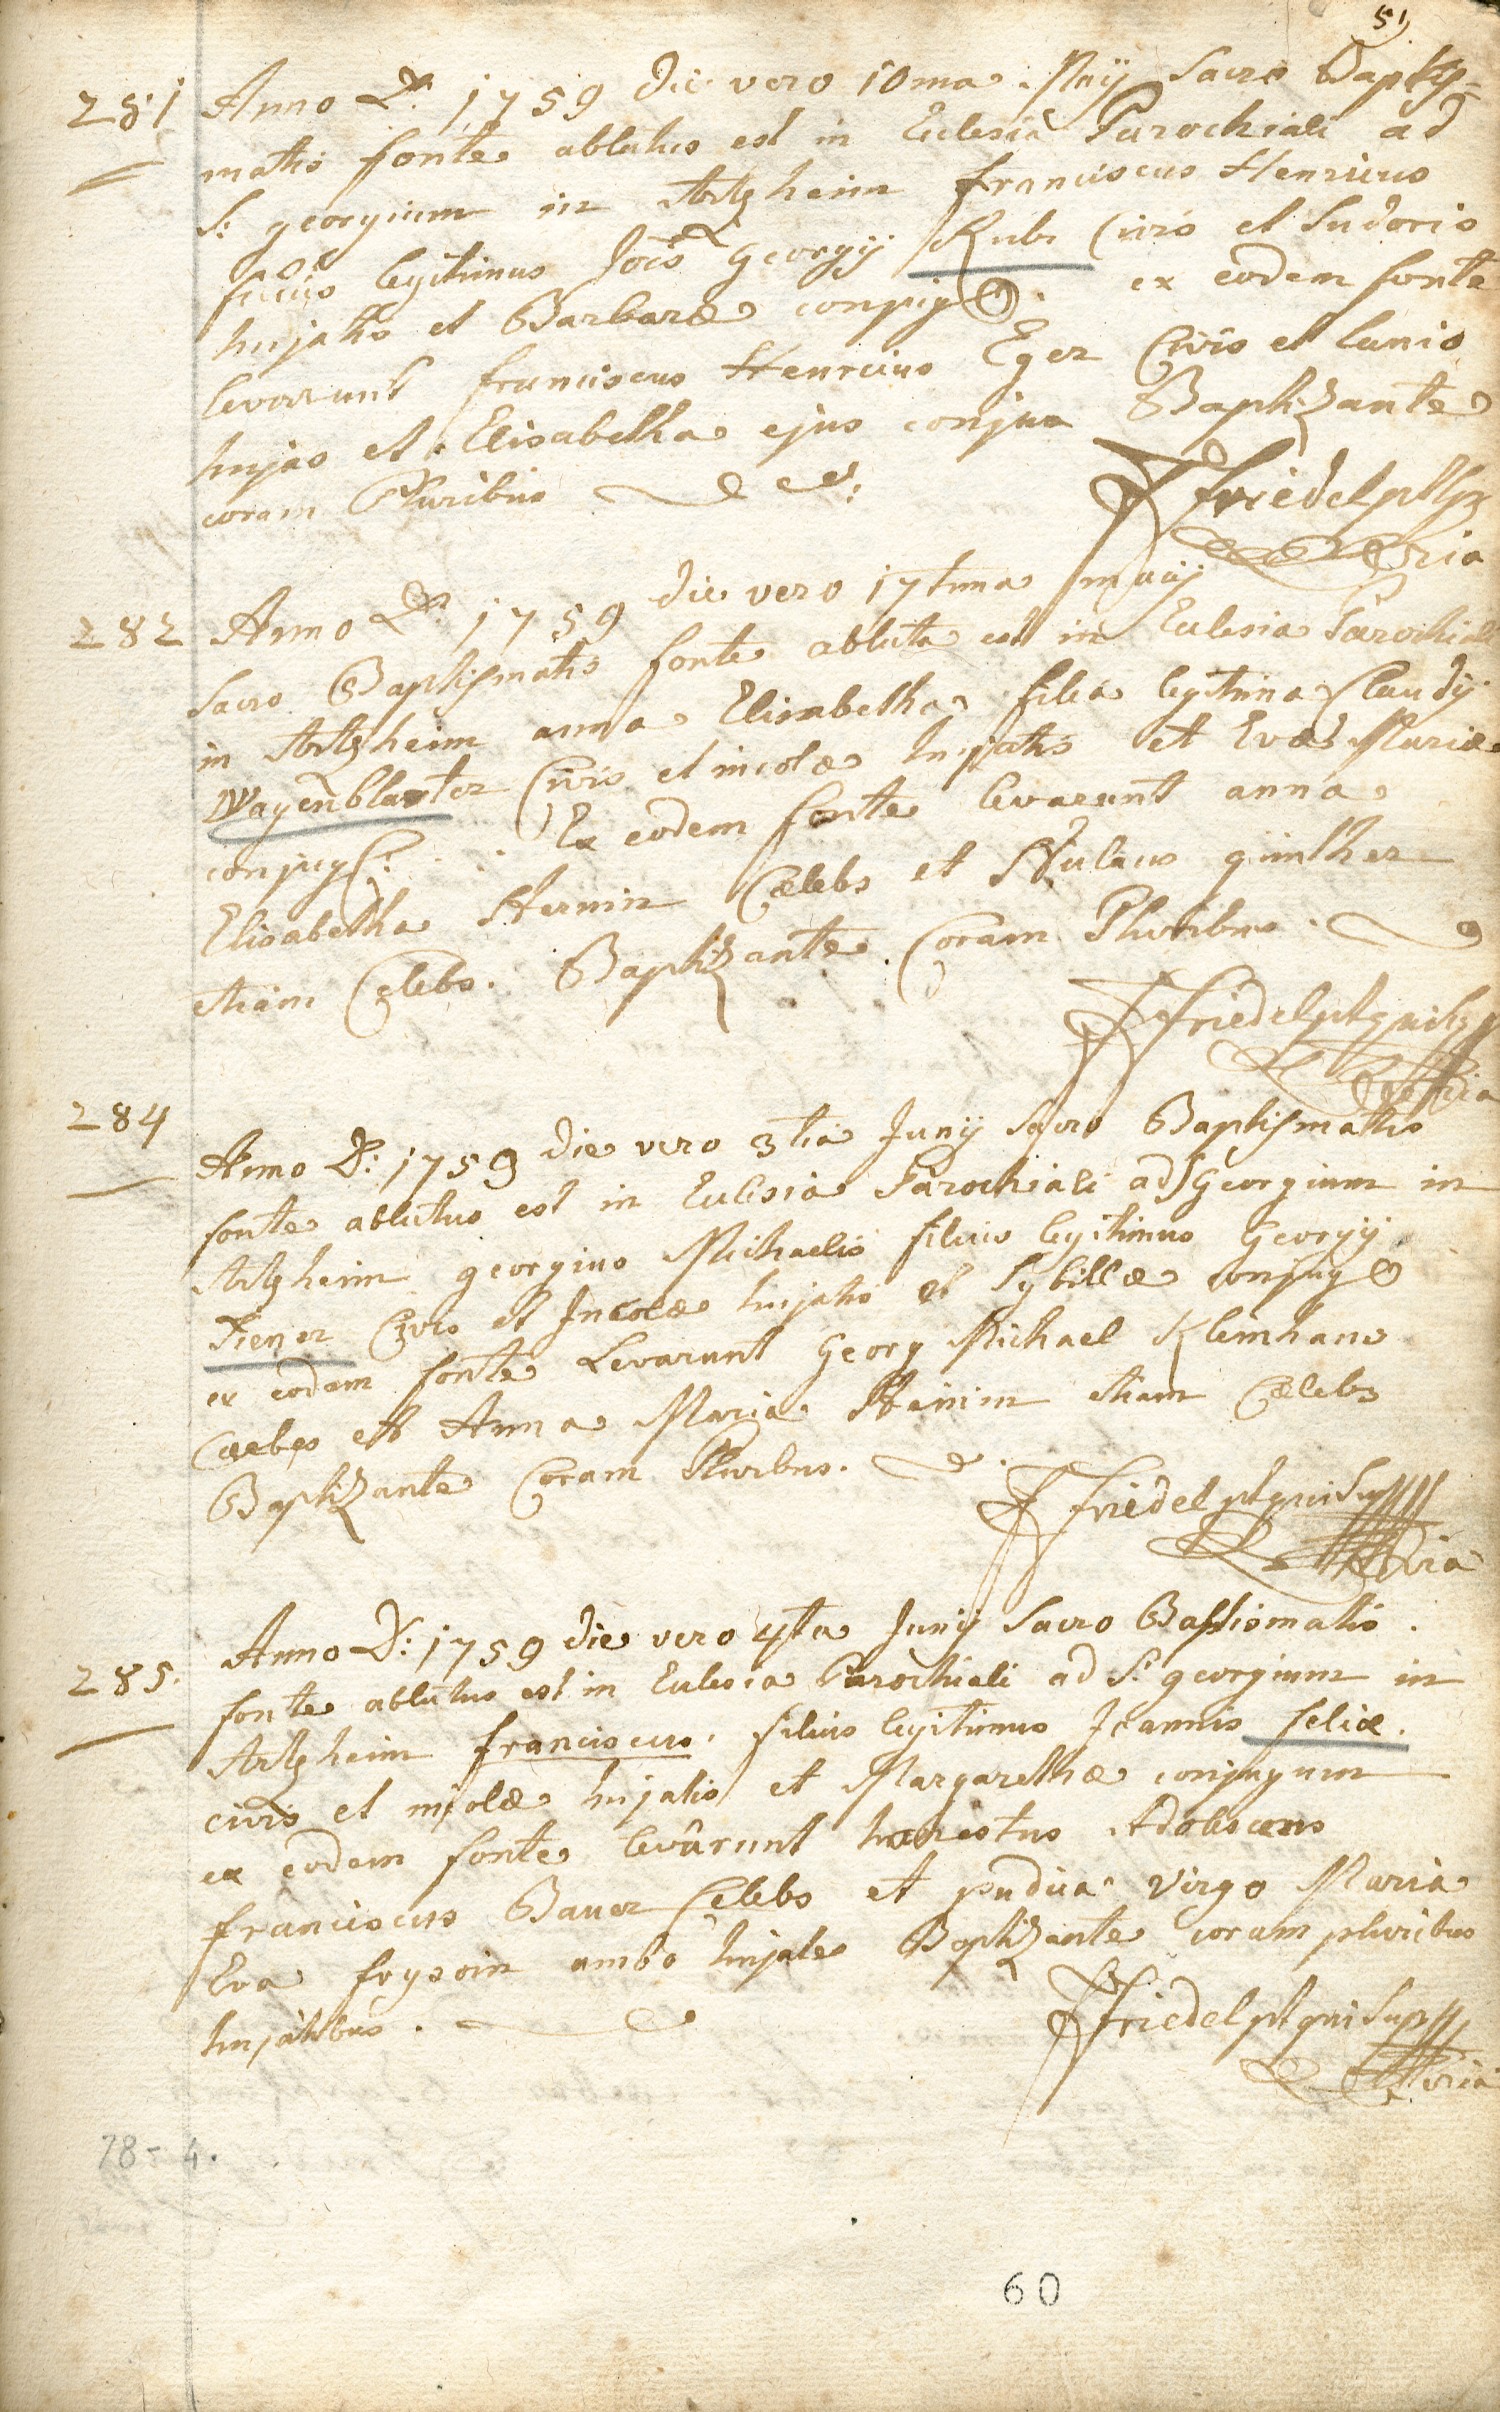 51
281 Anno D: 1759 die vero 10ma Maij Sacro Baptis-
matis fonte ablutus est in Eclesia Parochiali ad
S: georgium in Artzheim franciscus Henricus
filius legitimus Jois Georgij Kub Civis et Sudoris
hujatis et Barbaræ conjug. ex eodem fonte
levarunt franciscus Henricus Eger Civis et lanio
hujas et Elisabetha ejus conjux Baptizante
coram Pluribus
Friedel
282 Anno D: 1759 die vero 17tima maij
Sacro Baptismatis fonte abluta est in Eclesia Parochiali
in Artzheim anna Elisabetha filia legitima Claudij
Wagenblatter Civis et incolæ hujatis et Evæ Mariæ
conjug: Ex eodem fonte levarunt anna
Elisabetha Cælebs et günther
etiam Cælebs. Baptizante Coram Pluribus.
Friedel
284
Anno D: 1759 die vero 3tia Junij Sacro Baptismatis
fonte ablutus est in Eclesia Parochiali ad S Georgium in
Artzheim georgius Michaelis filius legitimus Georgij
Diener Civis et Incolæ hujatis et Sybillæ conjug
ex eodem fonte Levarunt Georg Michael Kleinhans
Cælebs et Anna Maria etiam Cælebs
Baptizante Coram Pluribus.
Friedel pt qui Sup
285. Anno D: 1759 die vero 4ta Junij Sacro Baptismatis.
fonte ablutus est in Eclesia Parochiali ad S: georgium in
Artzheim franciscus, filius legitimus Joannis felix.
civis et incolæ hujatis et Margarethæ conjugum
ex eodem fonte levârunt honestus Adolescens
franciscus Bauer Cælebs et pudica Virgo Maria
Eva ambo hujates Baptizante coram pluribus
hujatibus.
Friedel pt qui Sup
78-4.
60